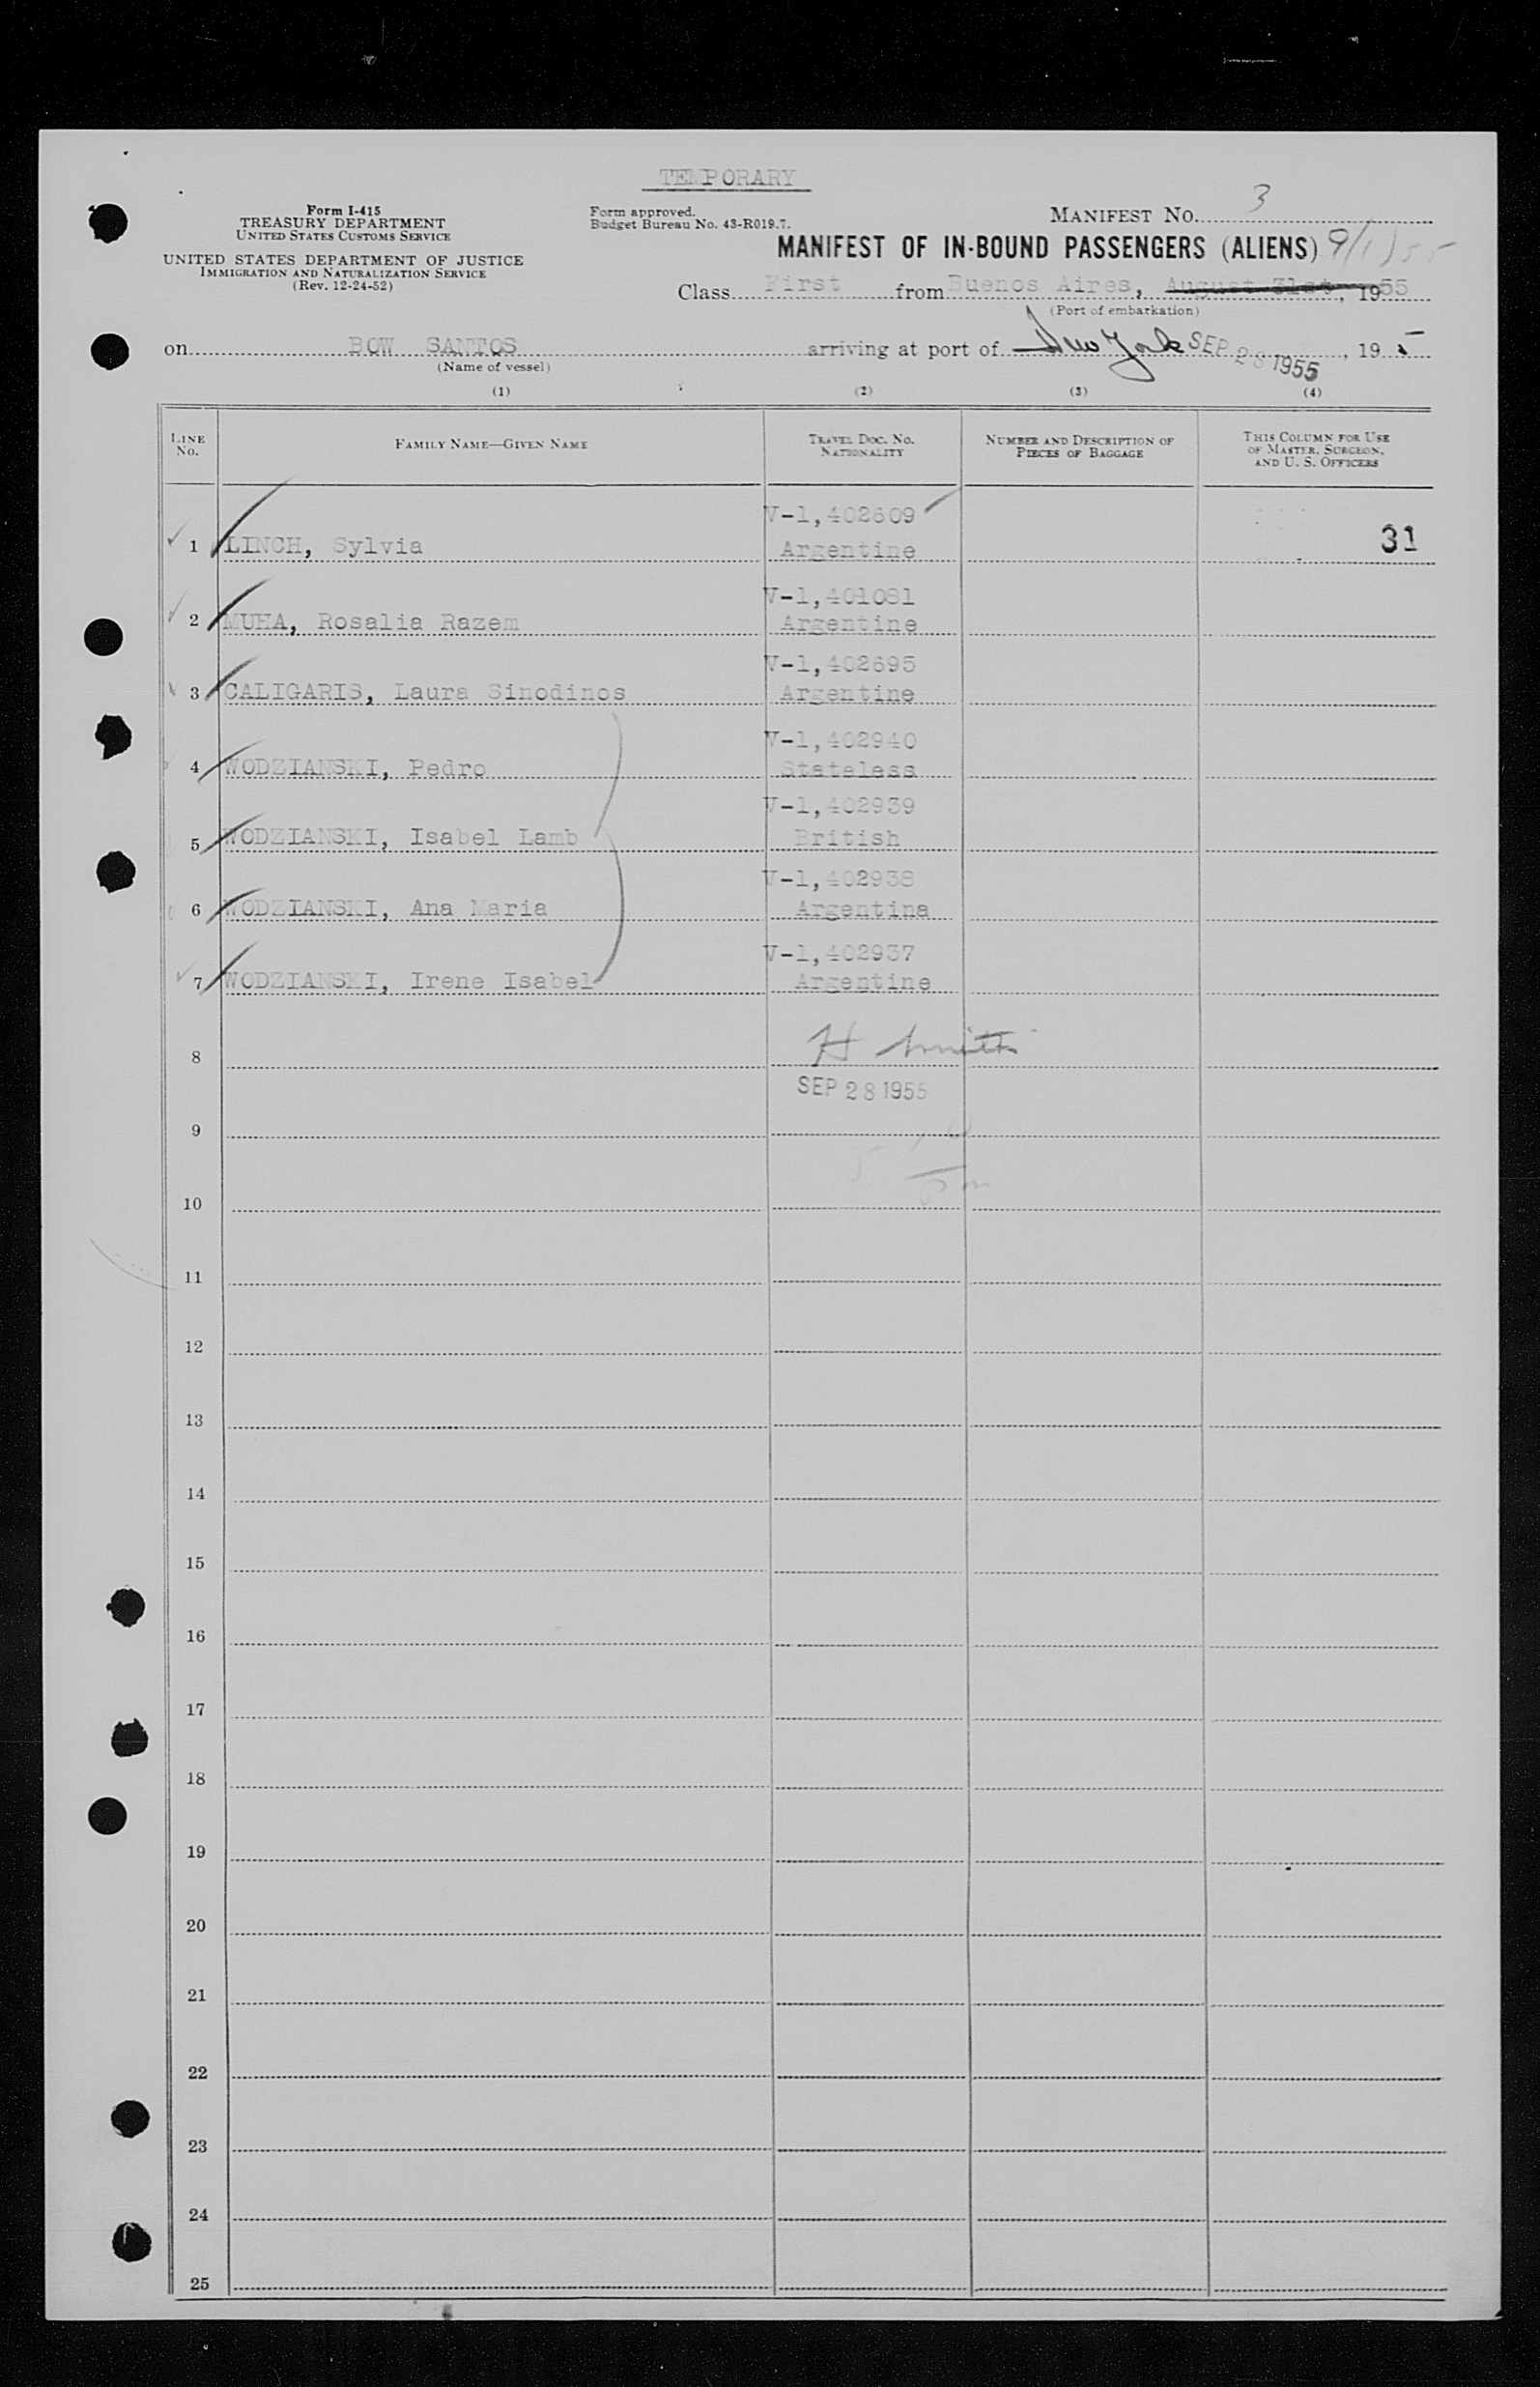 TEMPORARY
Form I-415
TREASURY DEPARTMENT
UNITED STATES CUSTOMS SERVICE
UNITED STATES DEPARTMENT OF JUSTICE
IMMIGRATION AND NATURALIZATION SERVICE
(Rev. 12-24-52)
Form approved.
Budget Bureau No. 43-R019.7.
MANIFEST NO. 3
MANIFEST OF IN-BOUND PASSENGERS (ALIENS) 9/1/55
Class First from Buenos Aires, August 31st, 1955
(Port of embarkation)
on BOW SANTOS arriving at port of New York SEP 28 1955, 195
(Name of vessel)
(1) (2) (3) (4)
LINE NO. FAMILY NAME—GIVEN NAME TRAVEL DOC. NO. NATIONALITY NUMBER AND DESCRIPTION OF PIECES OF BAGGAGE THIS COLUMN FOR USE OF MASTER, SURGEON, AND U. S. OFFICERS
V-1,402609
1 LINCH, Sylvia Argentine 31
V-1,401081
2 MUHA, Rosalia Razem Argentine
V-1,402695
3 CALIGARIS, Laura Sinodinos Argentine
V-1,402940
4 WODZIANSKI, Pedro Stateless
V-1,402939
5 WODZIANSKI, Isabel Lamb British
V-1,402938
6 WODZIANSKI, Ana Maria Argentina
V-1,402937
7 WODZIANSKI, Irene Isabel Argentine
8 H Smith
SEP 28 1955
9
10
11
12
13
14
15
16
17
18
19
20
21
22
23
24
25